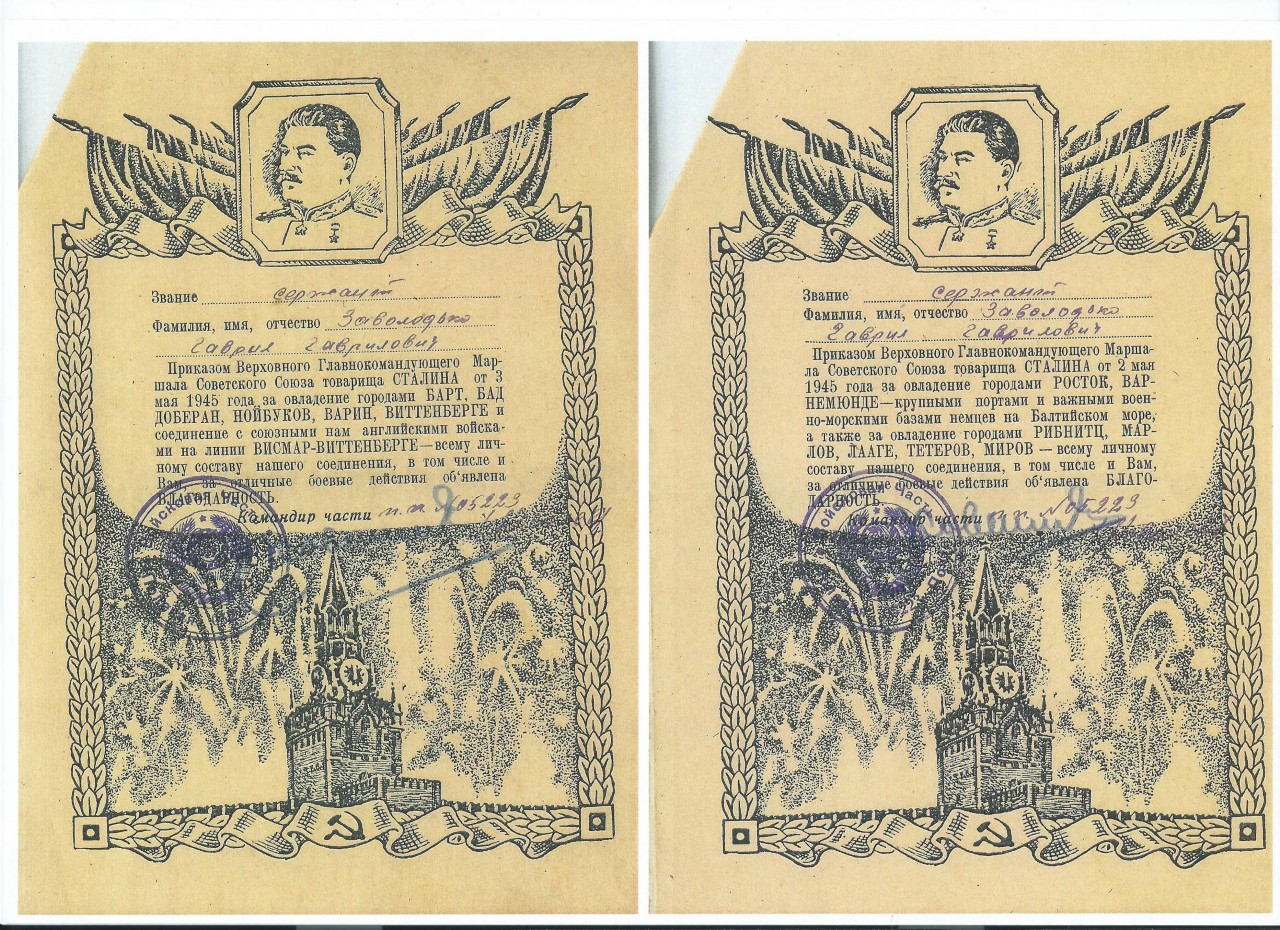 Звание сержант
Фамилия, имя, отчество Заволодько
Гаврил Гаврилович
Приказом Верховного Главнокомандующего Мар-
шала Советского Союза товарища СТАЛИНА от 3
мая 1945 года за овладение городами БАРТ, БАД
ДОБЕРАН, НОЙБУКОВ, ВАРИН, ВИТТЕНБЕРГЕ и
соединение с союзными нам английскими войска-
ми на линии ВИСМАР-ВИТТЕНБЕРГЕ—всему лич-
ному составу нашего соединения, в том числе и
Вам, за отличные боевые действия об‘явлена
БЛАГОДАРНОСТЬ.
Командир части п.п. 05223
Звание сержант
Фамилия, имя, отчество Заволодько
Гаврил Гаврилович
Приказом Верховного Главнокомандующего Марша-
ла Советского Союза товарища СТАЛИНА от 2 мая
1945 года за овладение городами РОСТОК, ВАР-
НЕМЮНДЕ—крупными портами и важными воен-
но-морскими базами немцев на Балтийском море,
а также за овладение городами РИБНИТЦ, МАР-
ЛОВ, ЛААГЕ, ТЕТЕРОВ, МИРОВ — всему личному
составу нашего соединения, в том числе и Вам,
за отличные боевые действия об‘явлена БЛАГО-
ДАРНОСТЬ.
Командир части п.п. №